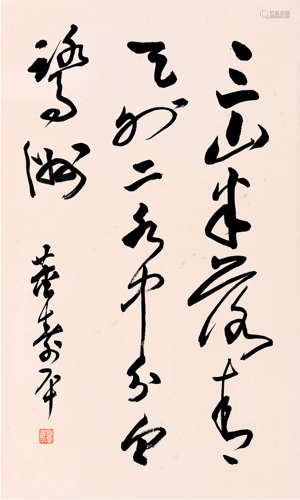 三山半落青
天外二水中分白
鹭洲
董寿平